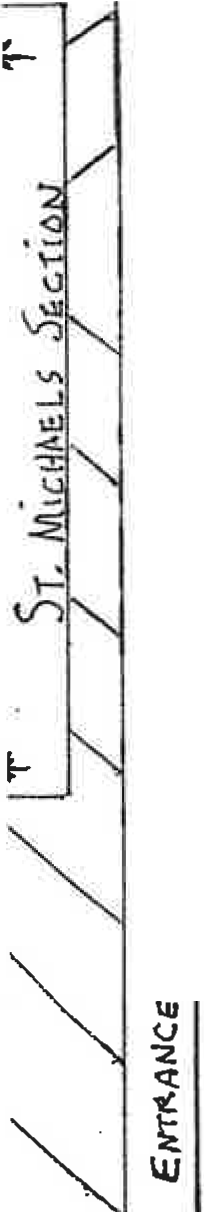 ST. MICHAELS SECTION
ENTRANCE